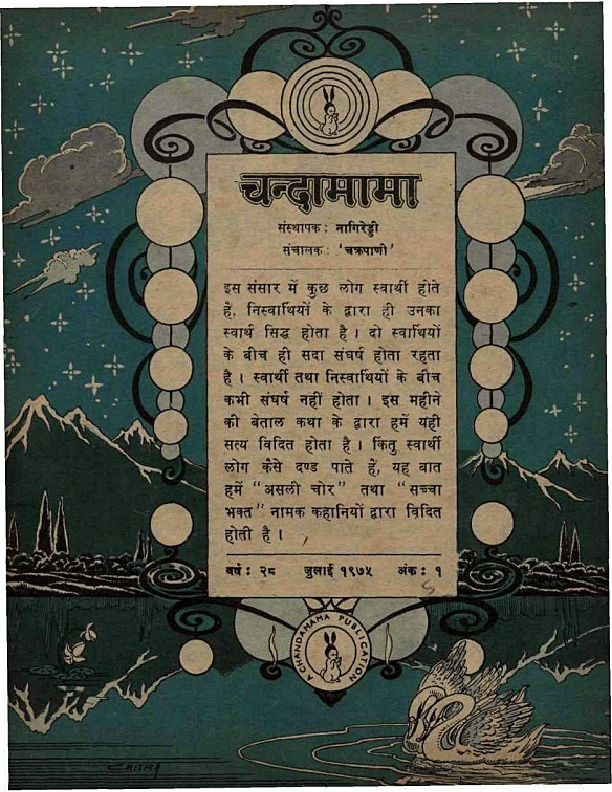 चन्दामामा
संस्थापक : नागिरेड्डी
संचालक : 'चक्रपाणी'
इस संसार में कुछ लोग स्वार्थी होते
हैं, निस्वार्थियों के द्वारा ही उनका
स्वार्थ सिद्ध होता है । दो स्वार्थियों
के बीच ही सदा संघर्ष होता रहता
है । स्वार्थी तथा निस्वार्थियों के बीच
कभी संघर्ष नहीं होता । इस महीने
की बेताल कथा के द्वारा हमें यही
सत्य विदित होता है । किंतु स्वार्थी
लोग कैसे दण्ड पाते हैं, यह बात
हमें "असली चोर" तथा "सच्चा
भक्त" नामक कहानियों द्वारा विदित
होती है ।
वर्ष : २८ जुलाई १९७५ अंक : १
A CHANDAMAMA PUBLICATION
CHITRA